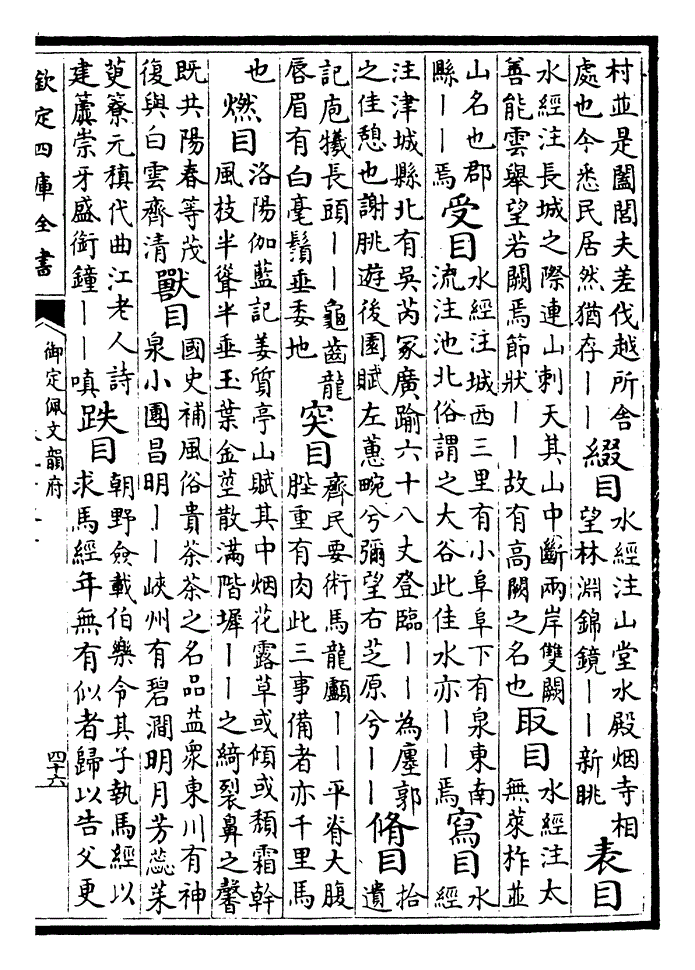 村並是闔閭夫差伐越所舍
處也今悉民居然猶存丨丨
綴目
水經注山堂水殿烟寺相
望林淵錦鏡丨丨新眺
表目
水經注長城之際連山刺天其山中斷兩岸雙闕
善能雲舉望若闕焉節狀丨丨故有高闕之名也
取目
水經注太
無萊柞並
山名也郡
縣丨丨焉
受目
水經注城西三里有小阜阜下有泉東南
流注池北俗謂之大谷此佳水亦丨丨焉
寫目
水
經
注津城縣北有吳芮冢廣踰六十八丈登臨丨丨為廛郭
之佳憩也謝朓遊後園賦左蕙畹兮彌望右芝原兮丨丨
脩目
拾
遺
記庖犧長頭丨丨龜齒龍
唇眉有白毫鬚垂委地
突目
齊民要術馬龍顱丨丨平脊大腹
䏶重有肉此三事備者亦千里馬
也
燃目
洛陽伽藍記姜質亭山賦其中烟花露草或傾或頹霜幹
風枝半聳半垂玉葉金莖散滿階墀丨丨之綺裂鼻之馨
既共陽春等茂
復與白雲齊清
獸目
國史補風俗貴茶茶之名品益衆東川有神
泉小團昌明丨丨峽州有碧澗明月芳蕊茱
萸簝元稹代曲江老人詩
建纛崇牙盛銜鐘丨丨嗔
跌目
朝野僉載伯樂令其子執馬經以
求馬經年無有似者歸以告父更
欽定四庫全書
御定佩文韻府
四十六